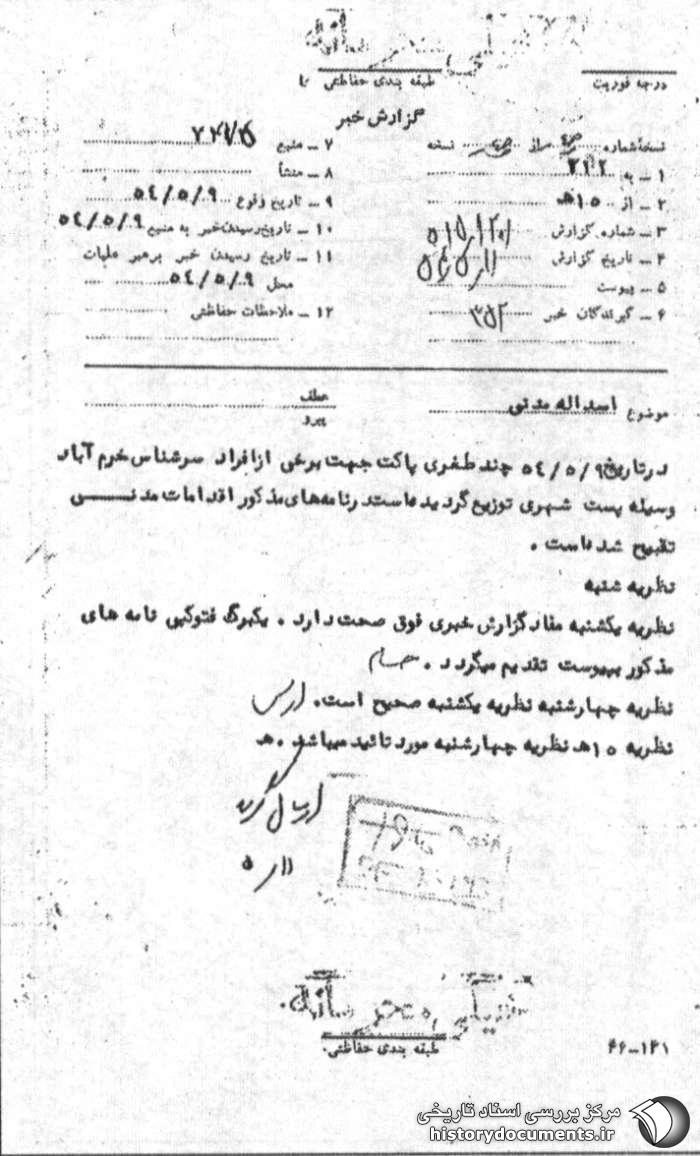 خیلی محرمانه
درجه فوریت
طبقه بندی حفاظتی
گزارش خبر
نسخهٔ شماره از نسخه
۱ ـ به ۳۱۲
۲ ـ از ۱۵هـ
۳ ـ شماره گزارش
۴ ـ تاریخ گزارش
۵ ـ پیوست
۶ ـ گیرندگان خبر
۷ ـ منبع
۸ ـ منشأ
۹ ـ تاریخ وقوع ۵۴/۵/۹
۱۰ ـ تاریخ رسیدن خبر به منبع ۵۴/۵/۹
۱۱ ـ تاریخ رسیدن خبر برهبر عملیات
محل ۵۴/۵/۹
۱۲ ـ ملاحظات حفاظتی
موضوع اسداله مدنی
عطف
پیرو
در تاریخ ۵۴/۵/۹ چند طغری پاکت جهت برخی از افراد سرشناس خرم آباد
وسیله پست شهری توزیع گردیده است در نامه های مذکور اقدامات مدنی
تقبیح شده است .
نظریه شنبه
نظریه یکشنبه مفاد گزارش خبری فوق صحت دارد . یکبرگ فتوکپی نامه های
مذکور بپیوست تقدیم میگردد .
نظریه چهارشنبه نظریه یکشنبه صحیح است.
نظریه ۱۵هـ نظریه چهارشنبه مورد تائید میباشد . هـ
ارسال گردد
۱۱ر۵
خیلی محرمانه
طبقه بندی حفاظتی
۴۶-۱۲۱
مرکز بررسی اسناد تاریخی
historydocuments.ir